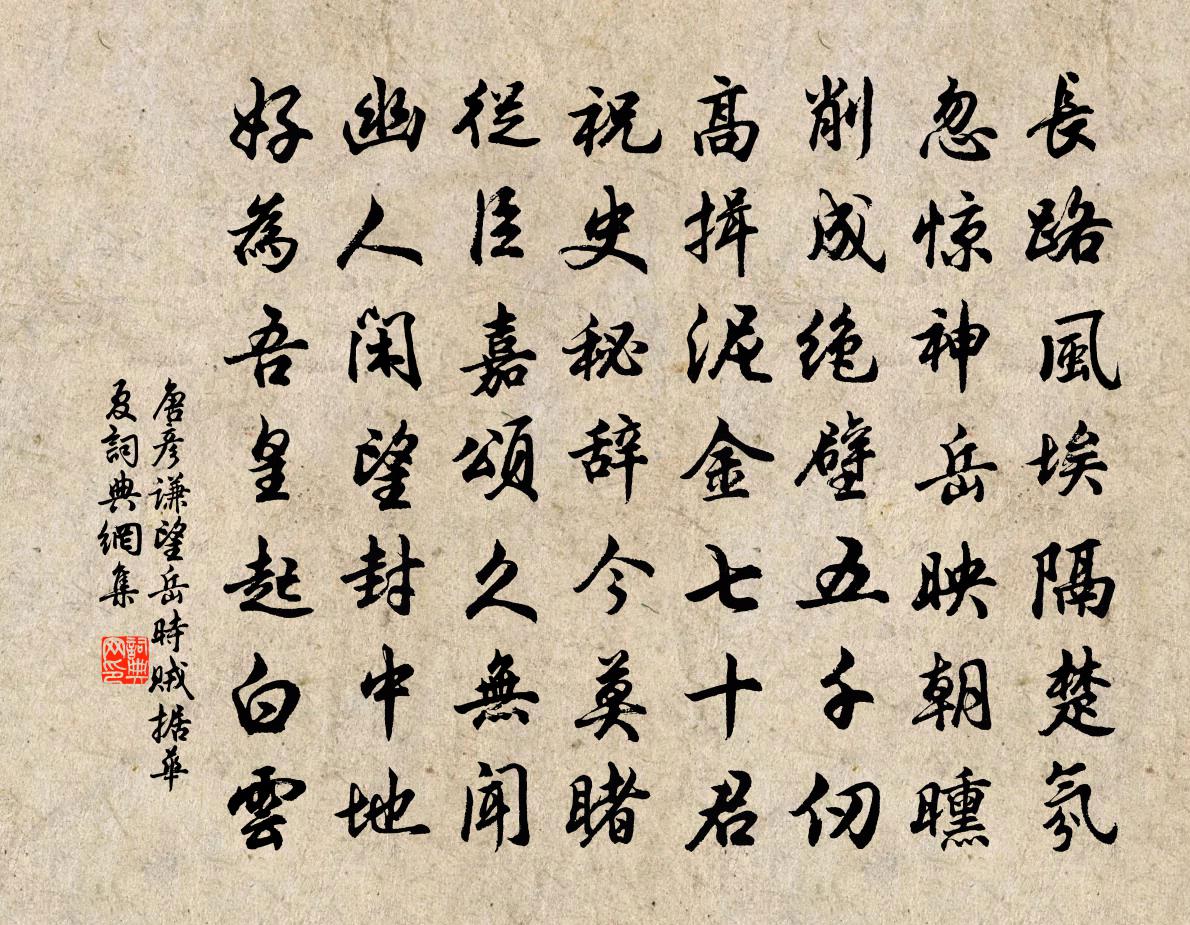 長路風埃隔楚氛
忽惊神岳映朝曛
削成绝壁五千仞
高揖泥金七十君
祝史秘辞今莫睹
從臣嘉頌久無聞
幽人閑望封中地
好為吾皇起白雲
唐彦谦望岳時賊据華
夏詞典網集
詞典
网印